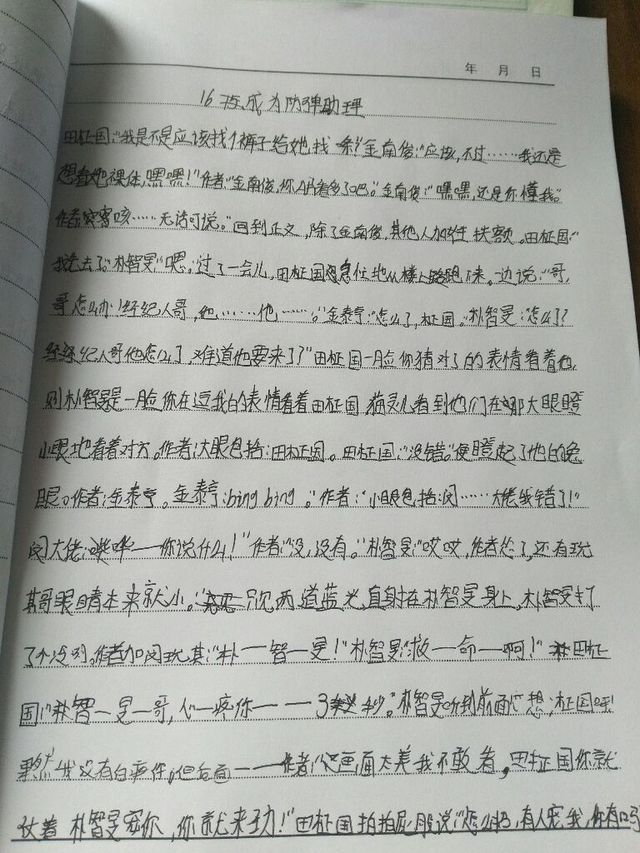 年 月 日
16 玩成为防弹助理
田柾国:“我是不是应该找个裤子给她找 条?金南俊:“应该,不过……我还是
想看她裸体,嘿嘿!”作者:“金南俊,你A片看多了吧。”金南俊:“嘿嘿,还是你懂我。”
作者:咳……无语可说。”回到正文,除了金南俊,其他人加作 扶额。田柾国:“
我去了。”朴智旻:“嗯。过了一会儿,田柾国急忙地从楼上跑下来。边说:“哥,
哥怎么办!经纪人哥,他……他……。”金泰亨:“怎么了,柾国。”朴智旻:“怎么了?
经纪人哥他怎么了,难道他要来了?”田柾国一脸你猜对了的表情看着他,
则朴智旻是一脸你在逗我的表情看着田柾国。猫灵儿看到他们在那大眼瞪
小眼地看着对方。作者:大眼包括:田柾国。田柾国:“没错。”便瞪起了他的兔
眼。作者:金泰亨。金泰亨:bing bing。”作者:“小眼包括闵……大佬我错了!”
闵大佬:——你说什么!”作者:“没,没有。”朴智旻:“哎哎,作者怂了,还有玧
其哥眼睛本来就小。”只见两道蓝光直射在朴智旻身上,朴智旻打
了个冷列。作者加闵玧其:“朴一智一旻!”朴智旻:“救一命一啊!”田柾
国:“朴智一旻一哥,心一疼你——3秒。”朴智旻听到前面心想:柾国呀
果然我没有白疼你,但后面——作者:“这画面太美我不敢看。田柾国你就
仗着 朴智旻宠你,你就来劲!”田柾国拍拍屁股说:“怎么了,有人宠我,你有吗